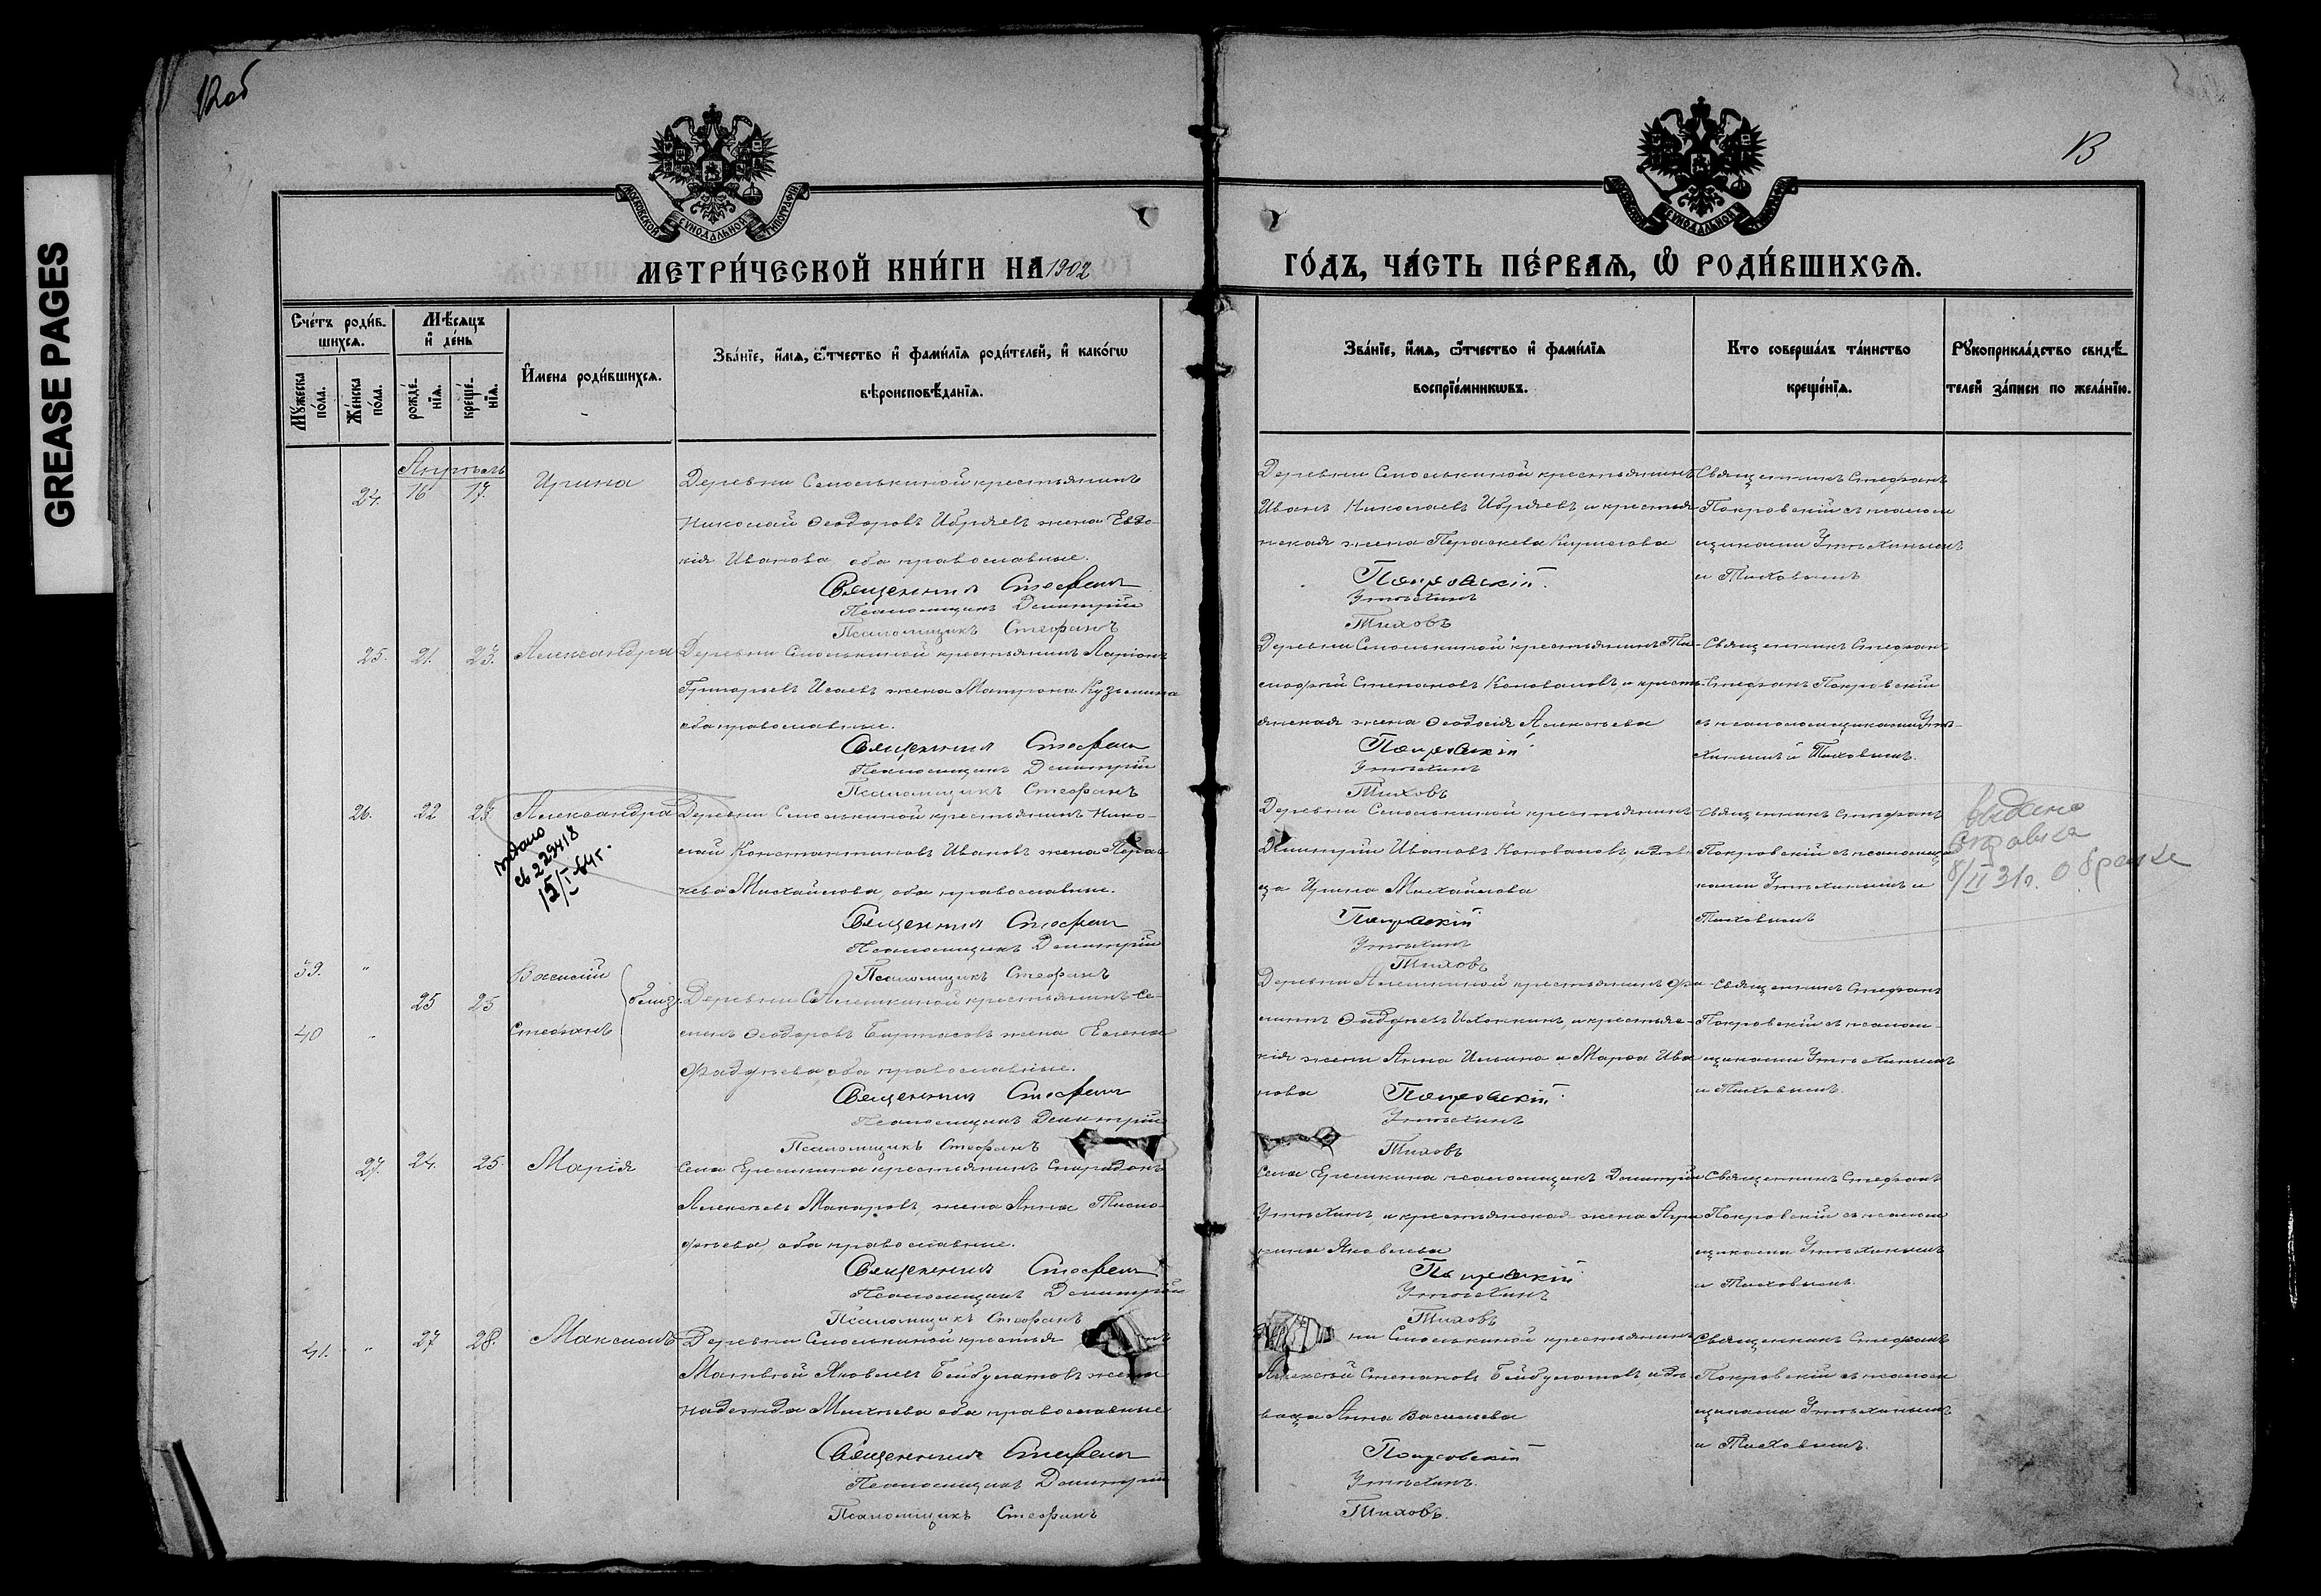 12об
13
GREASE PAGES
МОСКОВСКОЙ СѴНОДАЛЬНОЙ ТИПОГРАФІИ
МОСКОВСКОЙ СѴНОДАЛЬНОЙ ТИПОГРАФІИ
МЕТРИ́ЧЕСКОЙ КНИ́ГИ НА 1902
ГО́ДЪ, ЧА́СТЬ ПЕ́РВАЯ, Ѽ РОДИ́ВШИХСЯ.
Сче́тъ роди́в-
шихся.
Мѣсяцъ
и҆ де́нь
Мꙋжеска
по́ла.
Же́нска
по́ла.
рожде́-
нїя.
креще́-
нїя.
И҆мена роди́вшихся.
Зва́нїе, и҆́мя, ѻ҆́тчество и҆ фами́лїя роди́телей, и҆ како́гѡ
вѣроисповѣ́данїя.
Зва́нїе, и҆́мя, ѻ҆́тчество и҆ фами́лїя
воспрїе́мникѡвъ.
Кто соверша́лъ та́инство
креще́нїя.
Рꙋкоприкла́дство свидѣ́-
телей за́писи по жела́нїю.
Апрѣль
24. 16 17. Ирина
Деревни Смолькиной крестьянинъ
Николай Ѳеодоровъ жена Евдо-
кія Иванова, оба православные.
Священникъ Стефанъ
Псаломщикъ Димитрій
Псаломщикъ Стефанъ
Деревни Смолькиной крестьянинъ
Иванъ Николаевъ и крестья-
нская жена Параскева Кирилова
Покровскій
Утѣхинъ
Тиховъ
Священникъ Стефанъ
Покровскій съ псалом-
щиками Утѣхинымъ
и Тиховымъ
25. 21. 23. Александра
Деревни Смолькиной крестьянинъ Ларіонъ
Григорьевъ Исаевъ жена Матрона Кузьмина
оба православные.
Священникъ Стефанъ
Псаломщикъ Димитрій
Псаломщикъ Стефанъ
Деревни Смолькиной крестьянинъ Ти-
мофей Степановъ Коноваловъ, и кресть-
янская жена Ѳеодосія Алексѣева
Покровскій
Утѣхинъ
Тиховъ
Священникъ Стефанъ
Стефанъ Покровскій
съ псаломщиками Утѣ-
хинымъ и Тиховымъ.
26. 22 23 Александра
выдано
св 229418
15/I-64г.
Деревни Смолькиной крестьянинъ Нико-
лай Константиновъ Ивановъ жена Парас-
кева Михайлова, оба православные.
Священникъ Стефанъ
Псаломщикъ Димитрій
Псаломщикъ Стефанъ
Деревни Смолькиной крестьянинъ
Димитрій Ивановъ Коноваловъ и дѣви-
ца Ирина Михайлова
Покровскій
Утѣхинъ
Тиховъ
Священникъ Стефанъ
Покровскій съ псаломщи-
ками Утѣхинымъ и
Тиховымъ
Выдана
справка
8/II 21г. о браке
39. " Василій
25 25 близ.
40 " Стефанъ
Деревни Алешкиной крестьянинъ Се-
менъ Ѳеодоровъ жена Елена
Фадѣева, оба православные.
Священникъ Стефанъ
Псаломщикъ Димитрій
Псаломщикъ Стефанъ
Деревни Алешкиной крестьянинъ Фи-
липпъ Фадѣевъ и крестьянс-
кія жены Анна Ильина и Марѳа Ива-
нова
Покровскій
Утѣхинъ
Тиховъ
Священникъ Стефанъ
Покровскій съ псалом-
щиками Утѣхинымъ
и Тиховымъ.
27. 24. 25. Марія
Села Еремкина крестьянинъ Спиридонъ
Алексѣевъ Макаровъ, жена Анна Тимо-
фѣева, оба православные.
Священникъ Стефанъ
Псаломщикъ Димитрій
Псаломщикъ Стефанъ
Села Еремкина псаломщикъ Димитрій
Утѣхинъ, и крестьянская жена Агри-
пина Яковлева
Покровскій
Утѣхинъ
Тиховъ
Священникъ Стефанъ
Покровскій съ псалом
щиками Утѣхинымъ
и Тиховымъ.
41. " 27 28. Максимъ
Деревни Смолькиной крестья нъ
Матвѣй Яковлевъ Бейбулатовъ жена
Надежда Михѣева оба православные
Священникъ Стефанъ
Псаломщикъ Димитрій
Псаломщикъ Стефанъ
ни Смолькиной крестьянинъ
Алексѣй Степановъ Бейбулатовъ, и дѣ-
вица Анна Васильева
Покровскій
Утѣхинъ.
Тиховъ.
Священникъ Стефанъ
Покровскій съ псалом
щиками Утѣхинымъ
и Тиховымъ.